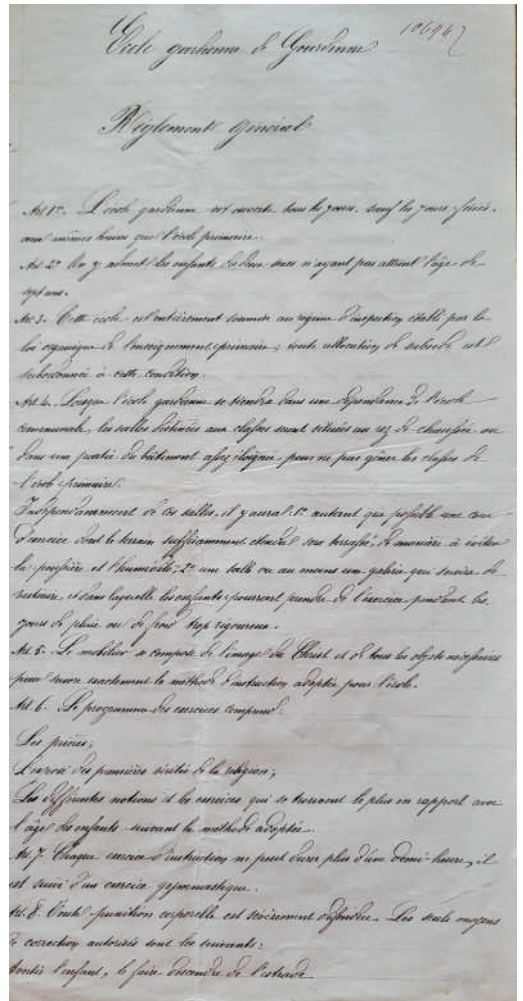 Ecole gardienne de Gourdinne
106967
Règlement général
Art 1er. L'école gardienne est ouverte tous les jours, sauf les jours fériés,
aux mêmes heures que l'école primaire.
Art. 2. On y admet les enfants des deux sexes n'ayant pas atteint l'âge de
sept ans.
Art 3. Cette école est entièrement soumise au régime d'inspection établi par la
loi organique de l'enseignement primaire; toute allocation de subside est
subordonnée à cette condition.
Art. 4. Lorsque l'école gardienne se tiendra dans une dépendance de l'école
communale, les salles destinées aux classes seront situées au rez de chaussée ou
dans une partie du bâtiment assez éloignée pour ne pas gêner les classes de
l'école primaire.
Indépendamment de ces salles, il y aura: 1° autant que possible une cour
d'exercice dont le terrain suffisamment étendu sera terrassé, de manière à éviter
la poussière et l'humidité; 2° une salle ou au moins une galerie qui servira de
vestiaire, et dans laquelle les enfants pourront prendre de l'exercice pendant les
jours de pluie ou de froid trop rigoureux.
Art. 5. Le mobilier se compose de l'image du Christ et de tous les objets nécessaires
pour suivre exactement la méthode d'instruction adoptée pour l'école.
Art. 6. Le programme des exercices comprend:
Les prières;
L'exposé des premières vérités de la religion;
Les différentes notions et les exercices qui se trouvent le plus en rapport avec
l'âge des enfants suivant la méthode adoptée.
Art 7. Chaque exercice d'instruction ne peut durer plus d'une demi-heure, il
est suivi d'un exercice gymnastique.
Art. 8. Toute punition corporelle est sévèrement défendue. Les seuls moyens
de correction autorisés sont les suivants:
Avertir l'enfant, le faire descendre de l'estrade